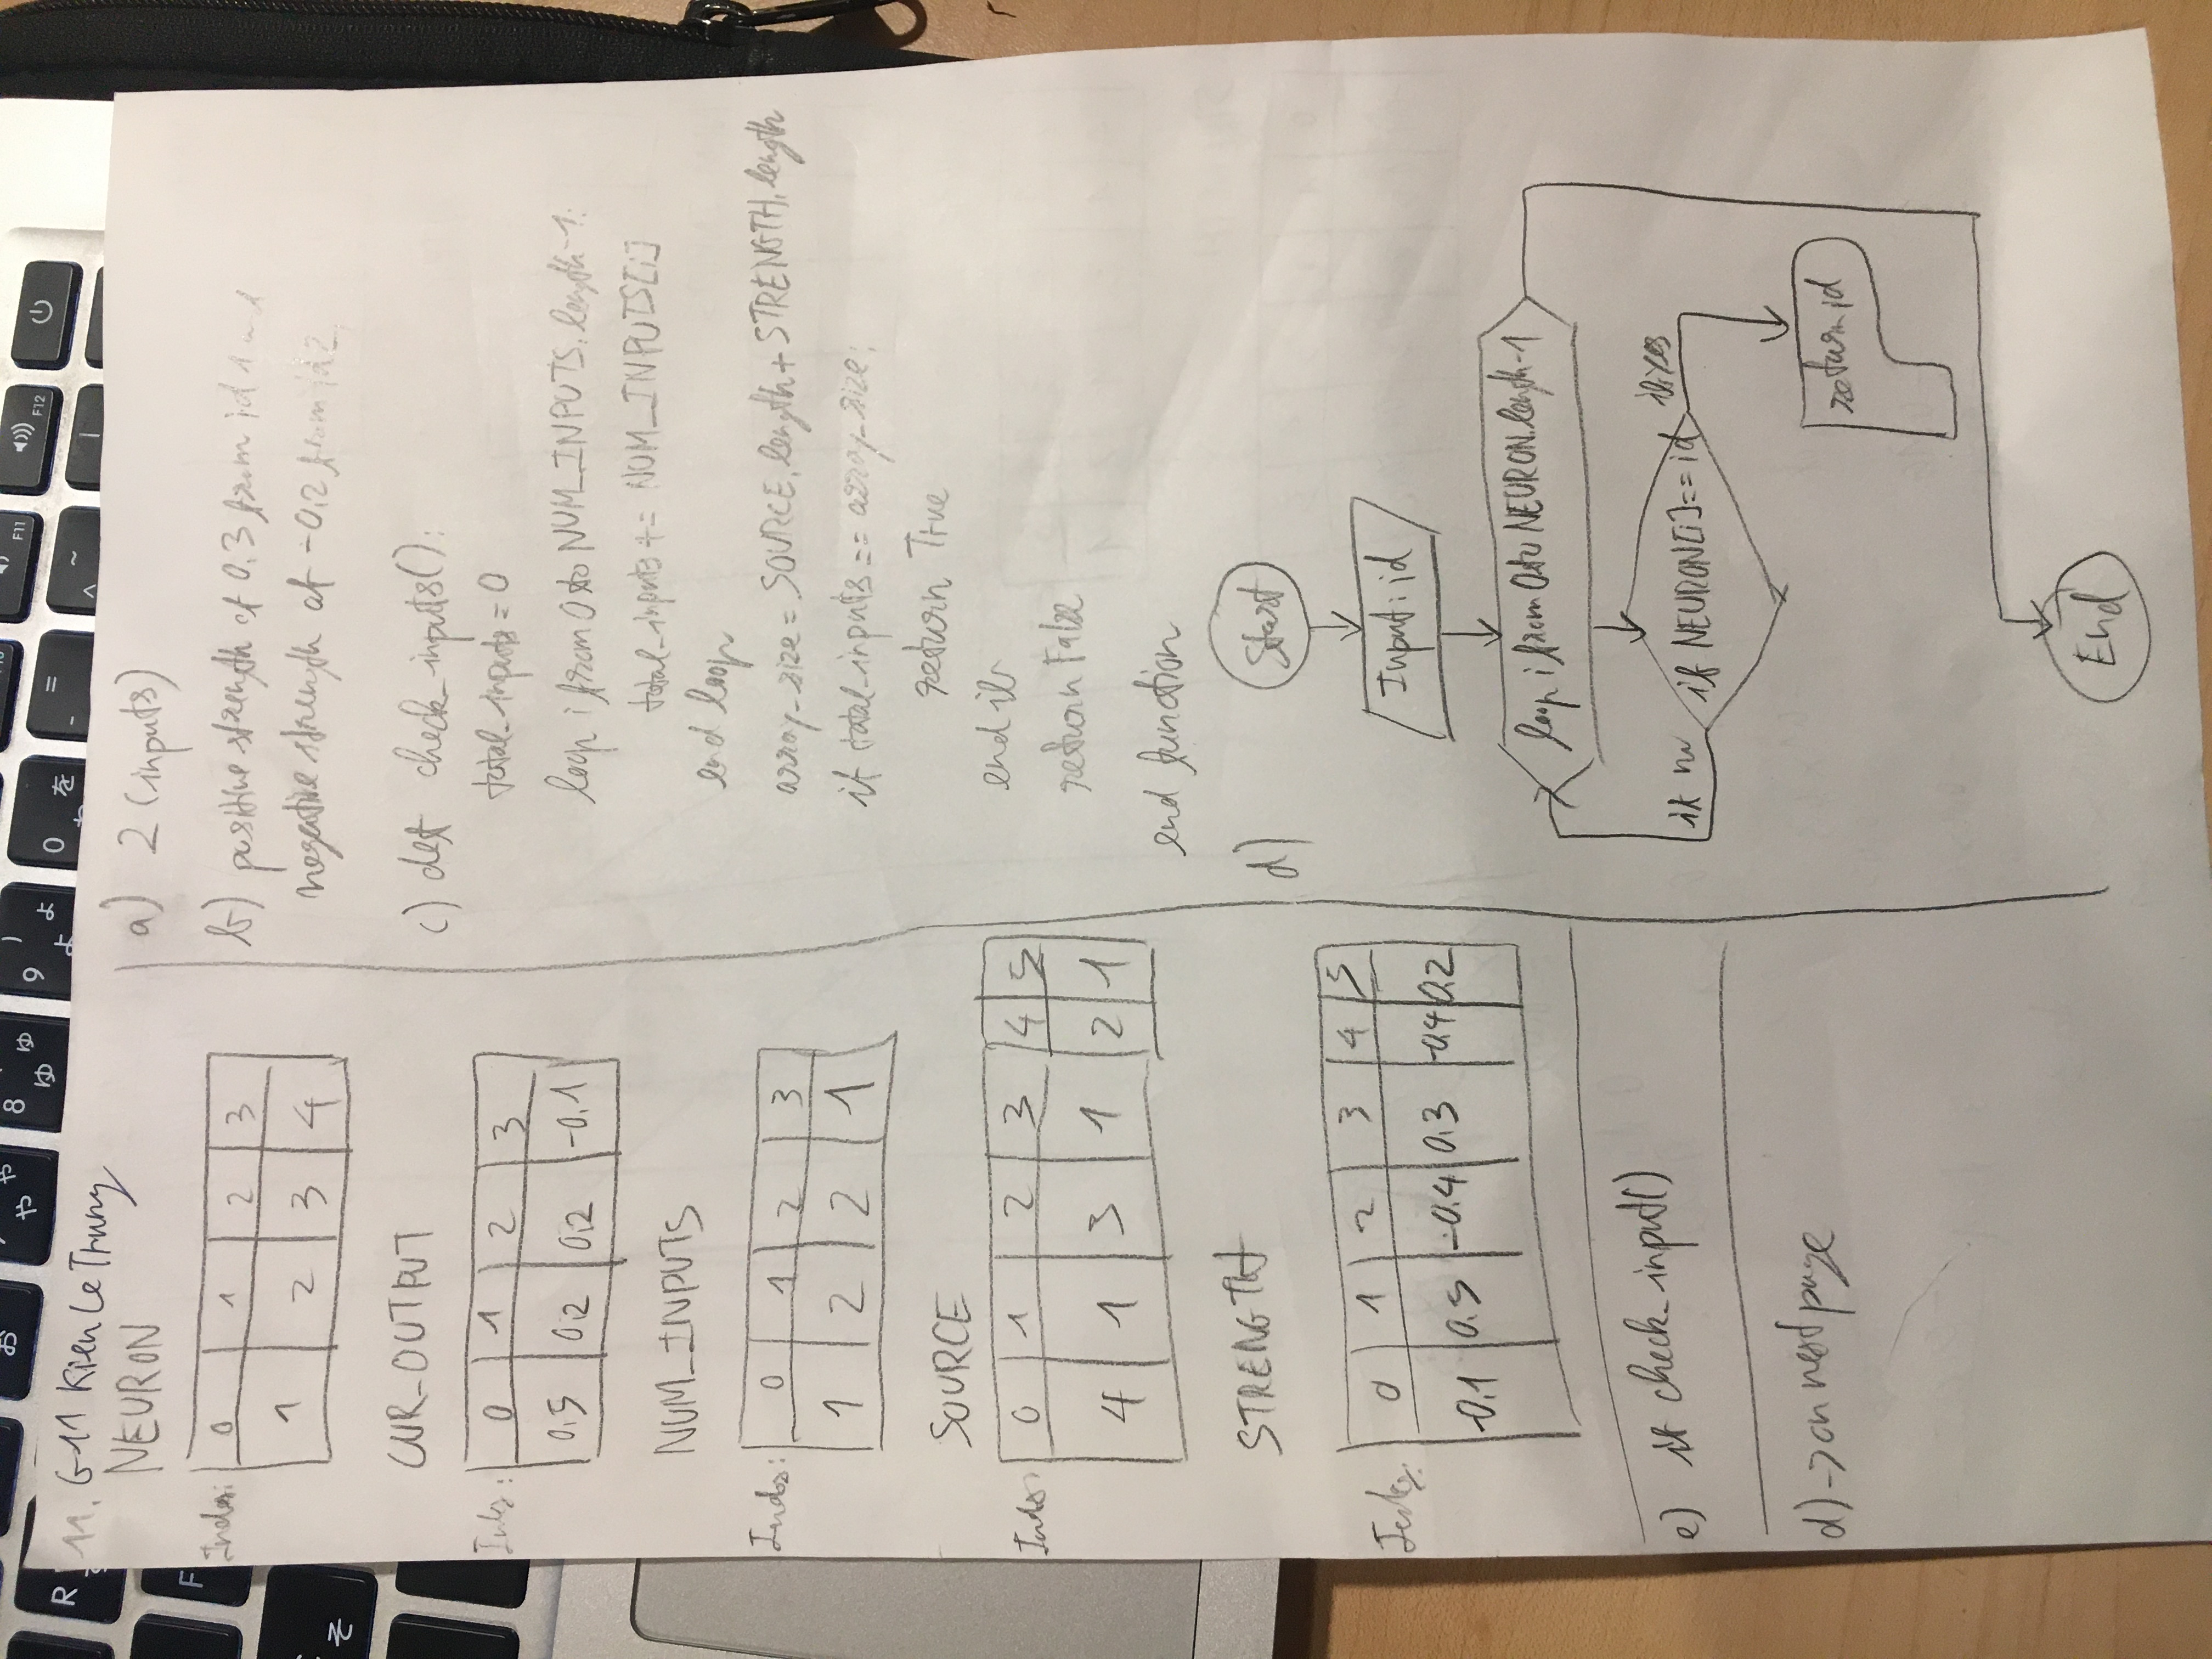 R
F
お
や
ゃ
8
ゆ
ゅ
9
)
よ
ょ
0
を
わ
=
-
~
^
F11
F12
そ
11. G11 Kien Le Trung
NEURON
Index: 0 1 2 3
1 2 3 4
CUR_OUTPUT
0 1 2 3
0,5 0,2 0,2 -0,1
NUM_INPUTS
Index: 0 1 2 3
1 2 2 1
SOURCE
Index: 0 1 2 3 4 5
4 1 3 1 2 1
STRENGTH
0 1 2 3 4 5
-0,1 0.5 -0.4 0.3 -0.4 0.2
e) if check_input()
d) -> on next page
a) 2 (inputs)
b) positive strength of 0.3 from id 1 and
negative strength of -0,2 from id 2
c) def check_inputs():
total_inputs = 0
loop i from 0 to NUM_INPUTS.length-1:
total_inputs += NUM_INPUTS[i]
end loop
array_size = SOURCE.length + STRENGTH.length
if total_inputs == array_size:
return True
end if
return False
end function
d) Start
Input: id
loop i from 0 to NEURON.length-1
if NEURON[i]==id
if no
if yes
return id
End